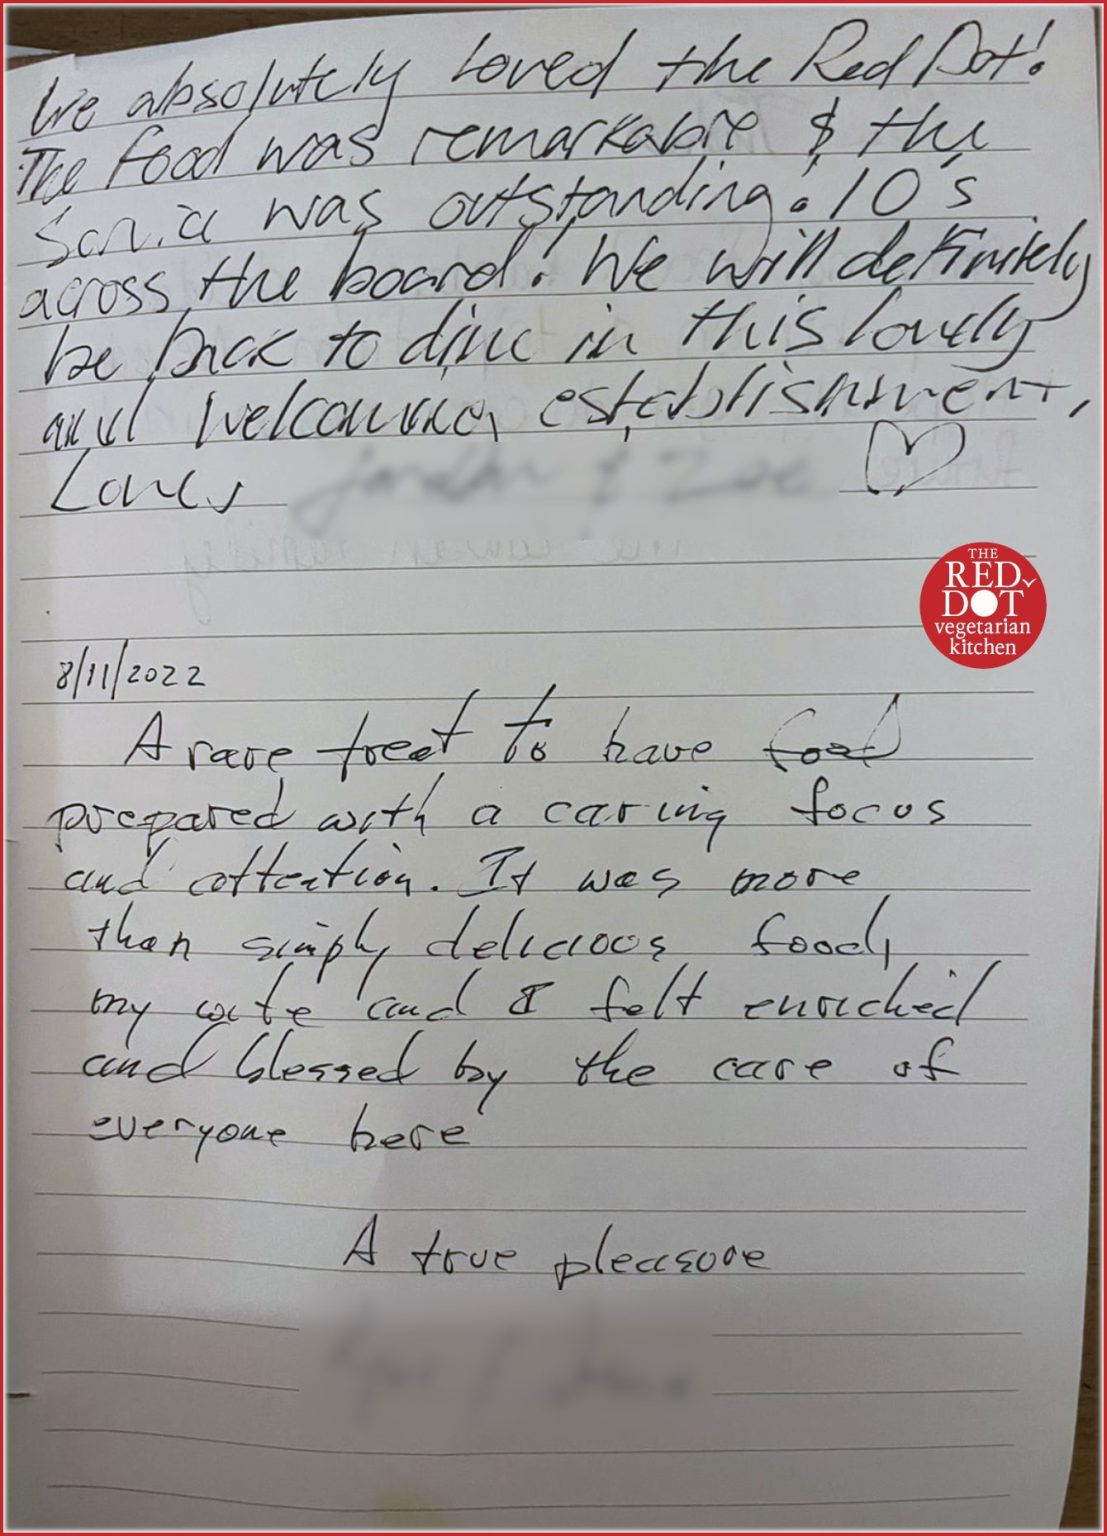 We absolutely loved the Red Dot!
The food was remarkable & the
Service was outstanding. 10's
across the board! We will definitely
be back to dine in this lovely
and welcoming establishment,
Love,
THE
RED
DOT
vegetarian
kitchen
8/11/2022
A rare treat to have food
prepared with a caring focus
and attention. It was more
than simply delicious food,
my wife and I felt enriched
and blessed by the care of
everyone here
A true pleasure